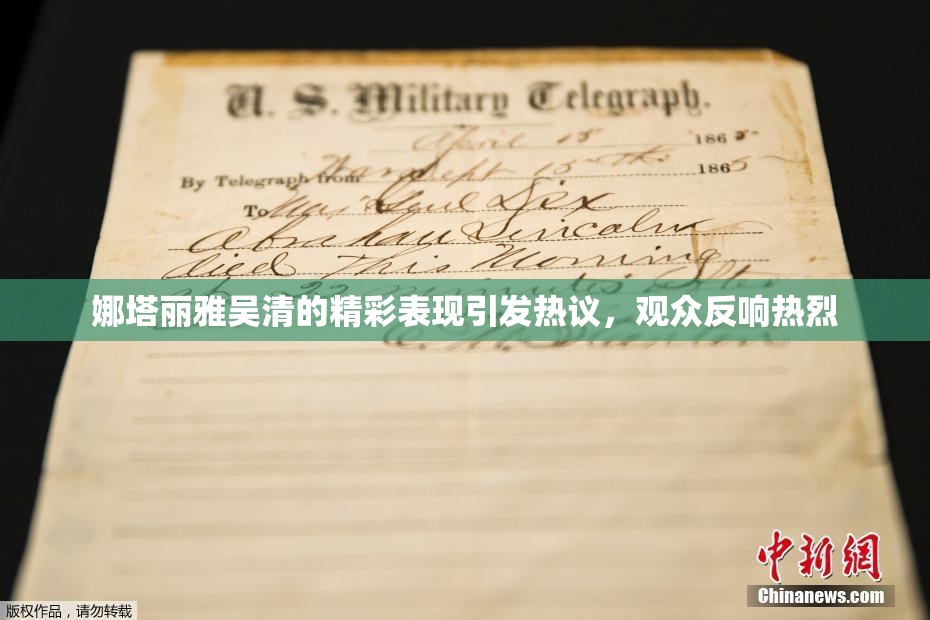 U. S. Military Telegraph.
April 15 1865
By Telegraph from War Dept 15th 1865
To Maj Genl Dix
Abraham Lincoln
died This Morning
at 22 minutes after
娜塔丽雅吴清的精彩表现引发热议，观众反响热烈
E. M. Stanton
中新网
Chinanews.com
版权作品，请勿转载